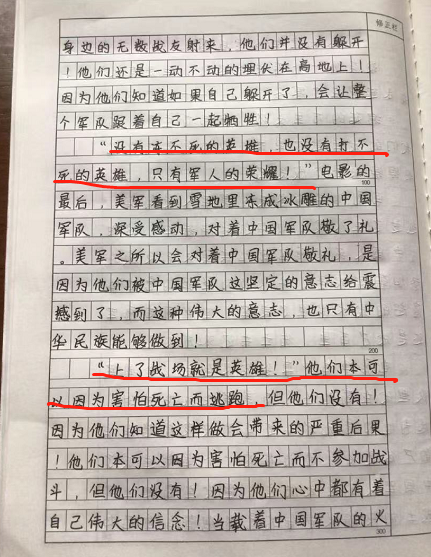 修正栏
身边的无数战友射来，他们并没有躲开
！他们还是一动不动的埋伏在高地上！
因为他们知道如果自己躲开了，会让整
个军队跟着自己一起牺牲！
“没有冻不死的英雄，也没有打不
死的英雄，只有军人的荣耀！”电影的
100
最后，美军看到雪地里冻成冰雕的中国
军队，深受感动，对着中国军队敬了礼
。美军之所以会对着中国军队敬礼，是
因为他们被中国军队这坚定的意志给震
撼到了，而这种伟大的意志，也只有中
华民族能够做到！
200
“上了战场就是英雄！”他们本可
以因为害怕死亡而逃跑，但他们没有！
因为他们知道这样做会带来的严重后果
！他们本可以因为害怕死亡而不参加战
斗，但他们没有！因为他们心中都有着
自己伟大的信念！当载着中国军队的火
300